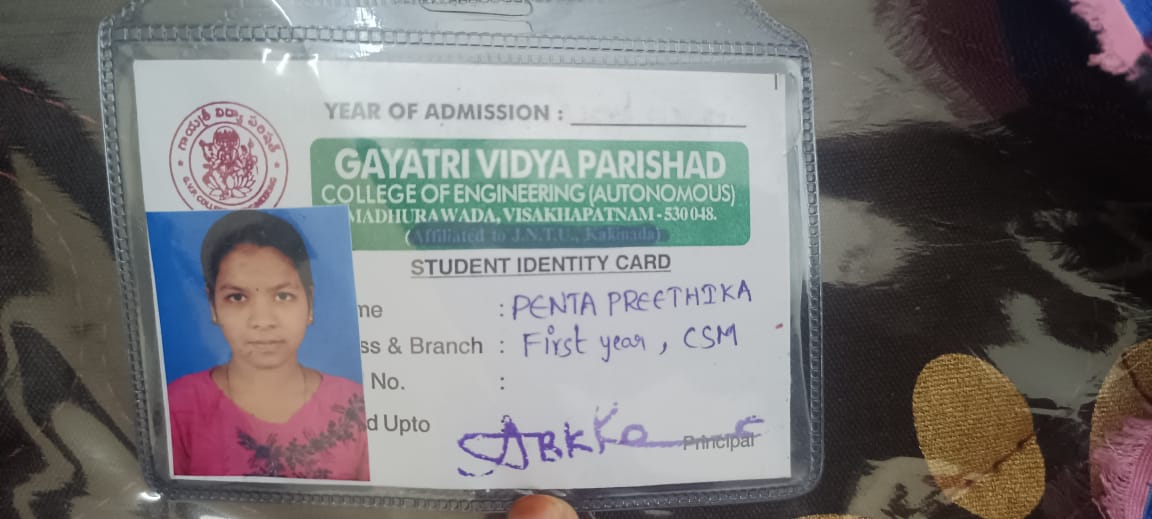 YEAR OF ADMISSION :
గాయత్రీ విద్యా పరిషత్
GAYATRI VIDYA PARISHAD
COLLEGE OF ENGINEERING (AUTONOMOUS)
MADHURAWADA, VISAKHAPATNAM - 530 048.
(Affiliated to J.N.T.U., Kakinada)
STUDENT IDENTITY CARD
me : PENTA PREETHIKA
ss & Branch : First year, CSM
No. :
d Upto :
Principal